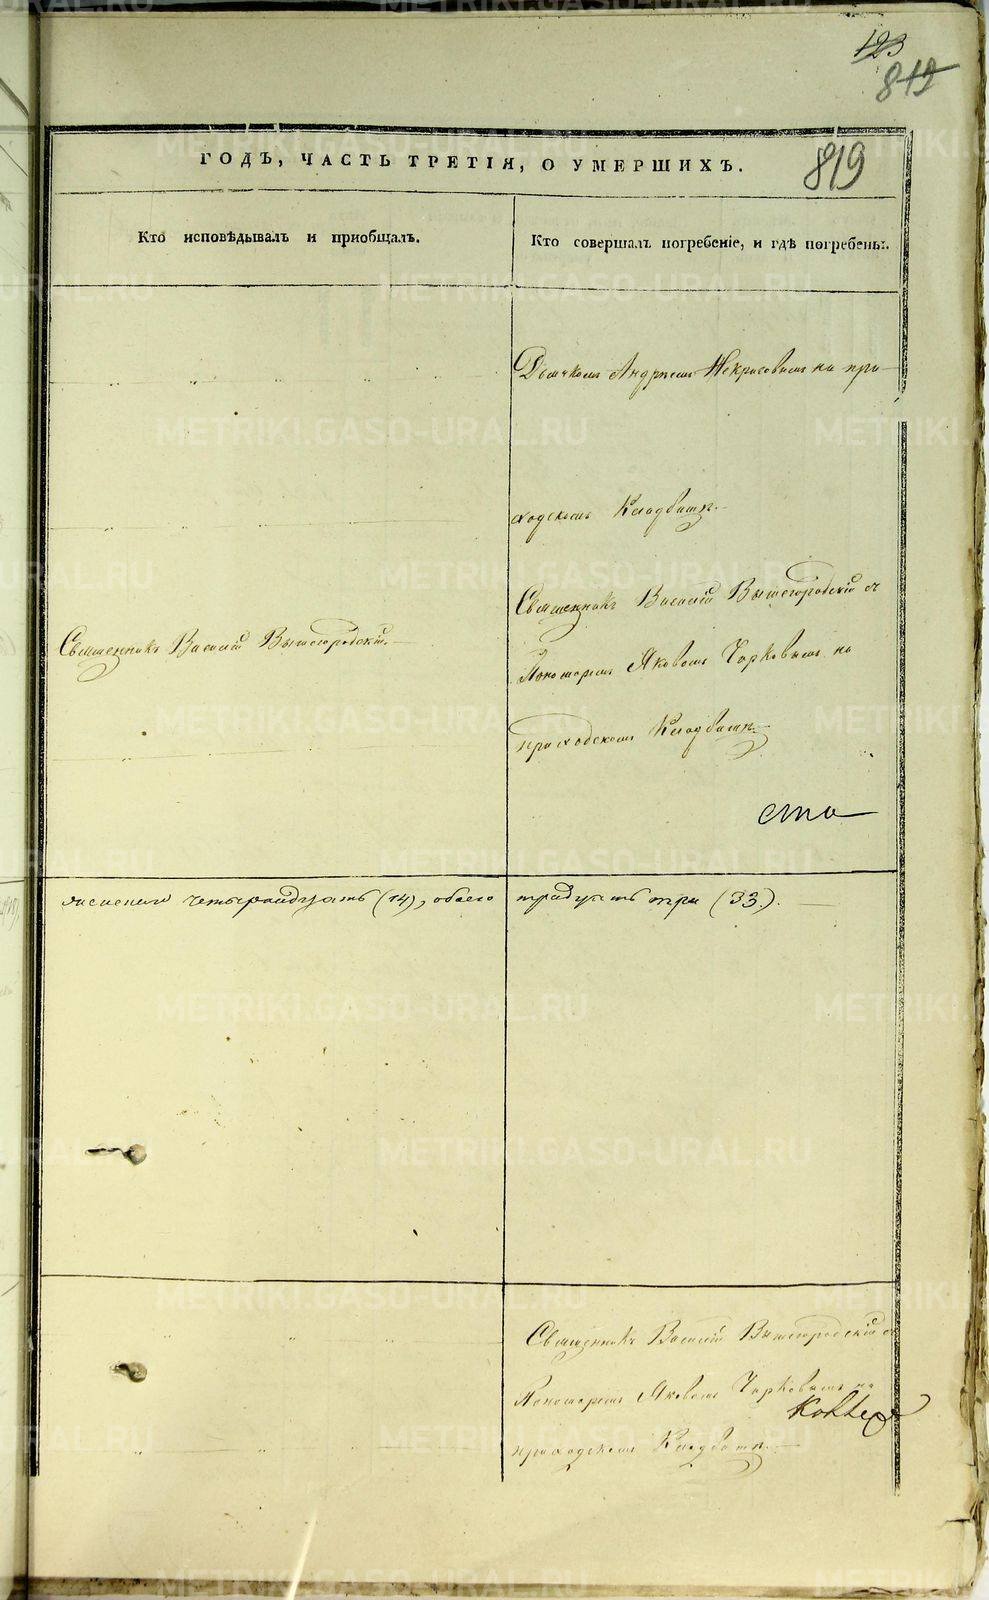 123
812
819
ГОДЪ, ЧАСТЬ ТРЕТІЯ, О УМЕРШИХЪ.
Кто исповѣдывалъ и пріобщалъ.
Кто совершалъ погребеніе, и гдѣ погребены.
Дьячкомъ Андреемъ Некрасовымъ на при-
ходскомъ Кладбищѣ.
Священникъ Василій Вышегородскій съ
Священникъ Василій Вышегородскій.
Пономаремъ Яковомъ Чорковымъ на
приходскомъ Кладбищѣ
сто
женска четырнадцать (14), обоего тридцать три (33).
Священникъ Василій Вышегородскій съ
Пономаремъ Яковомъ Чорковымъ на
приходскомъ Кладбищѣ.
METRIKI.GASO-URAL.RU